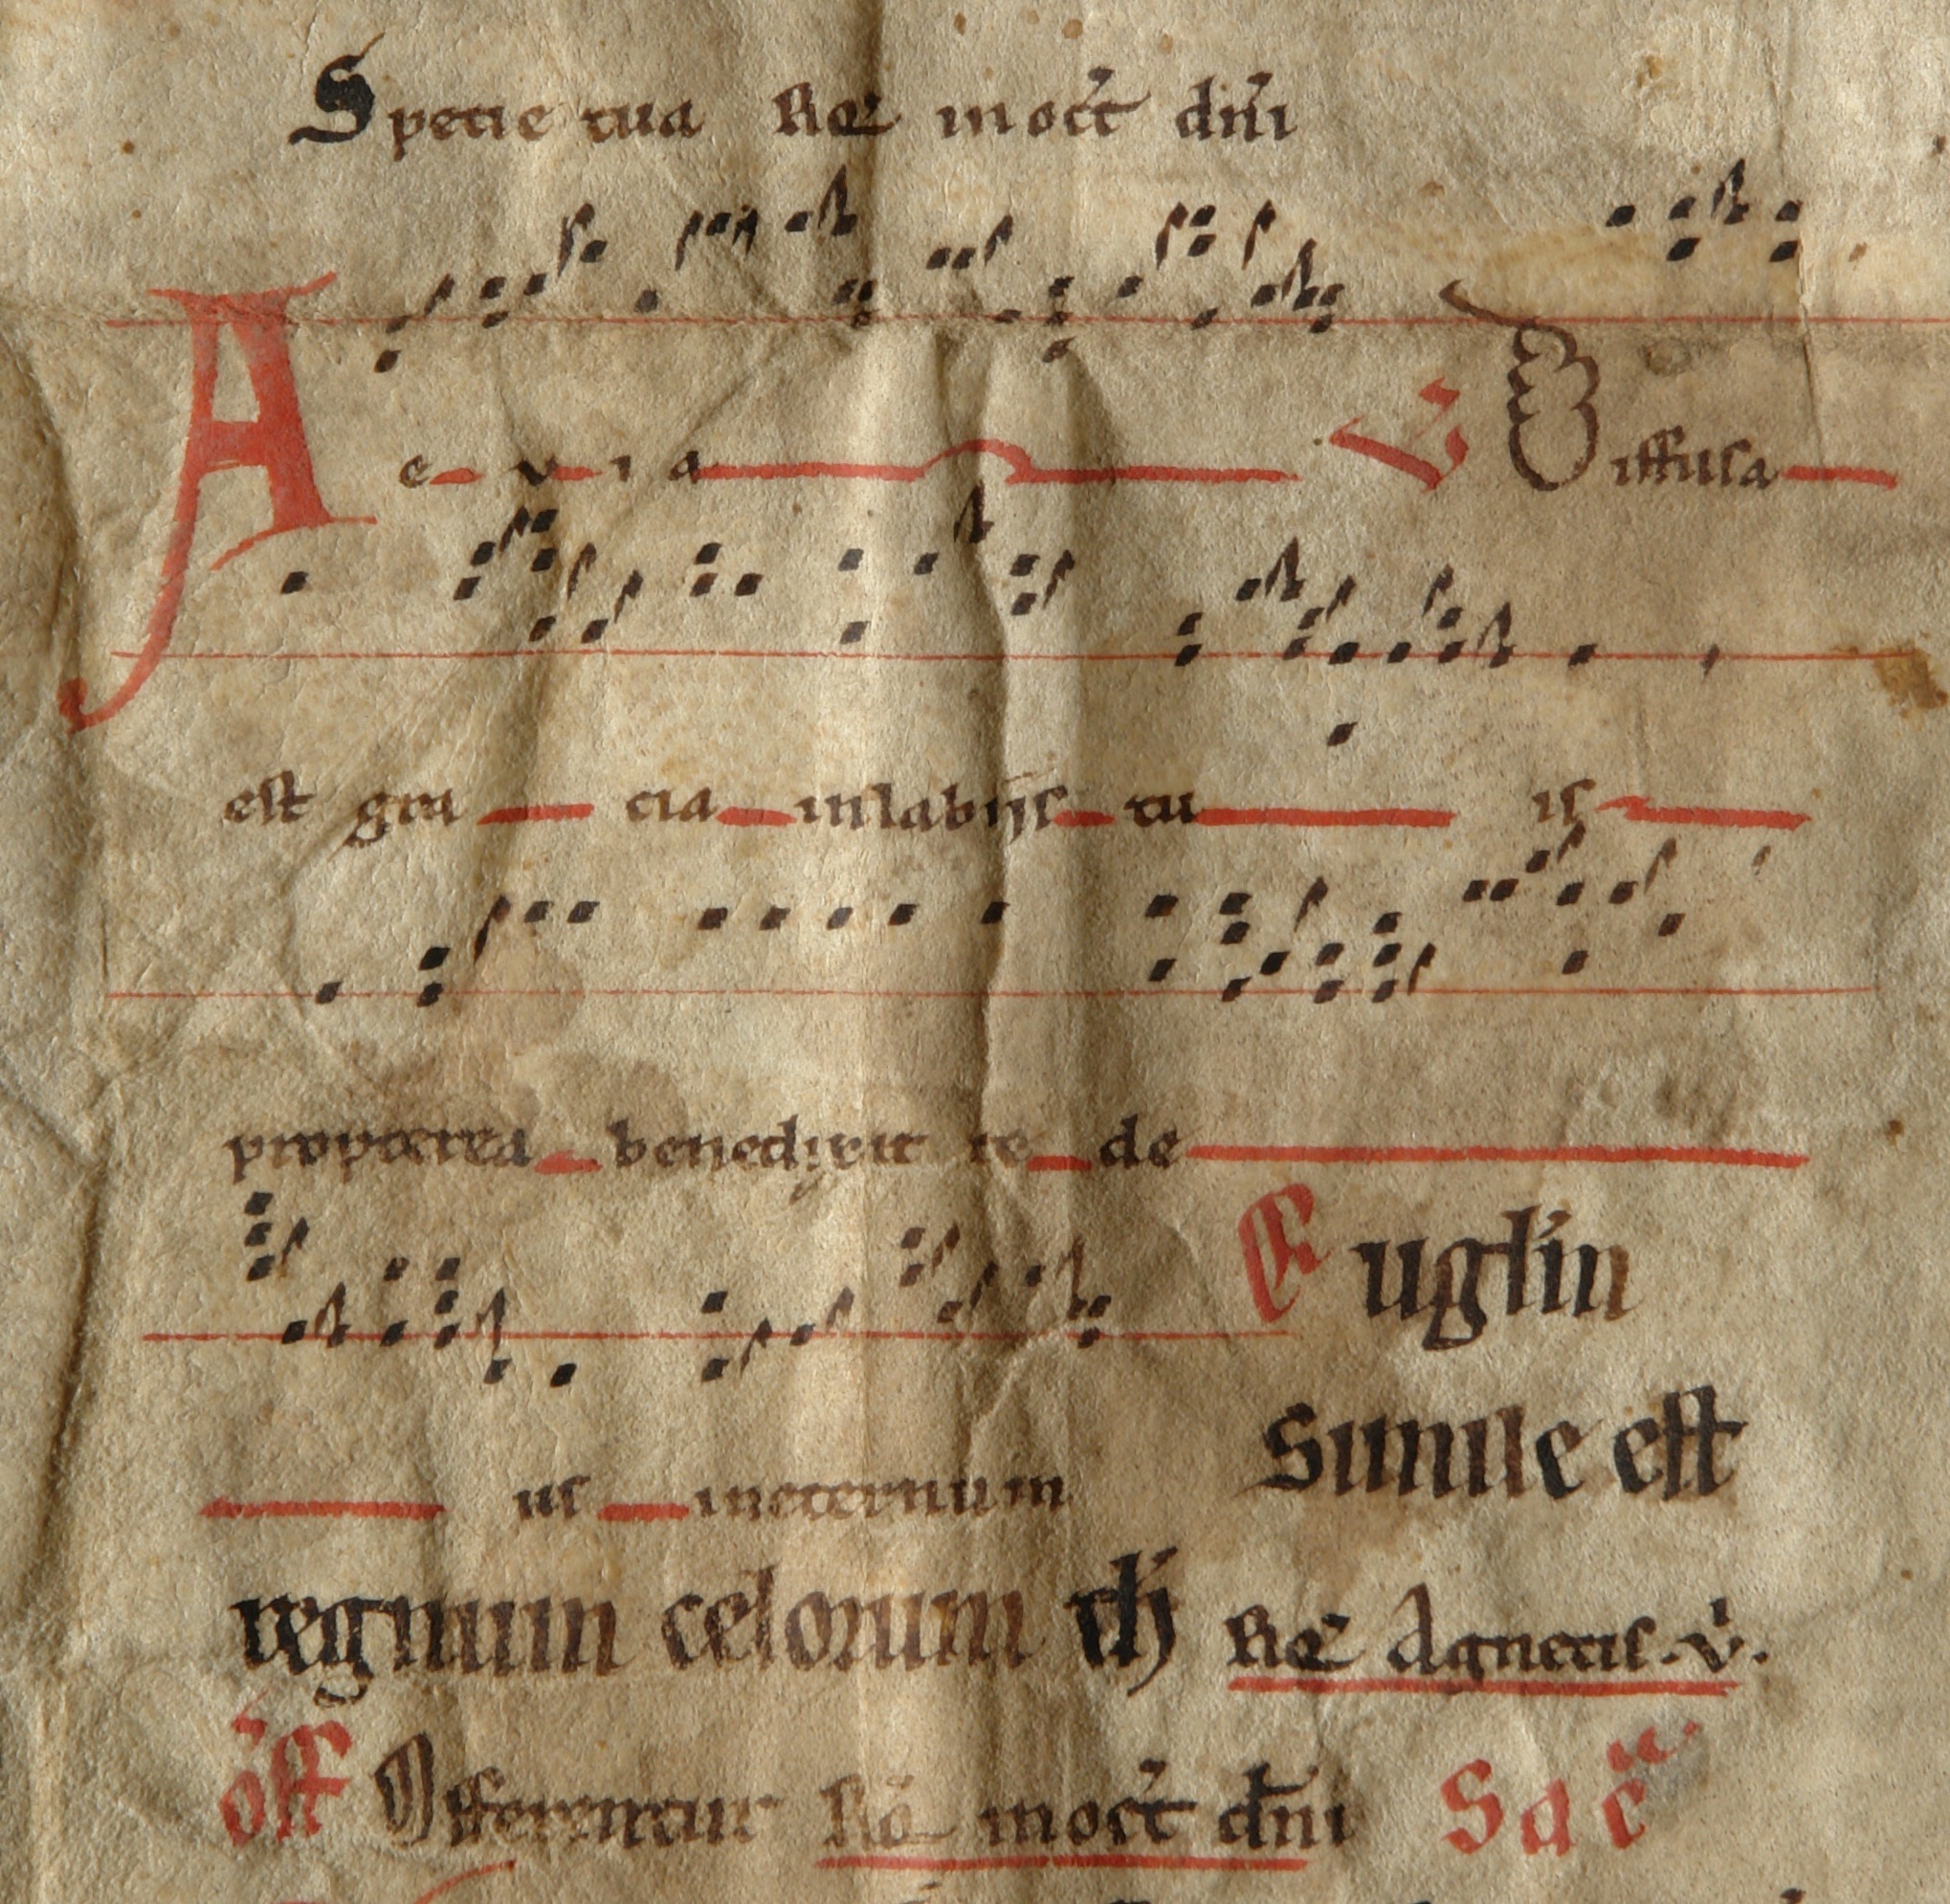 Specie tua Req̅ in oct̅ dn̅i
A e v i a ℣ Diffusa
est gra cia in labijs tu is
propterea benedixit te de
Eugl̅iu
us in eternum Simile est
regnum celorum th Req̅ Agnetis . v̇ .
off Offerentur Re in oct̅ dn̅i Sac̅